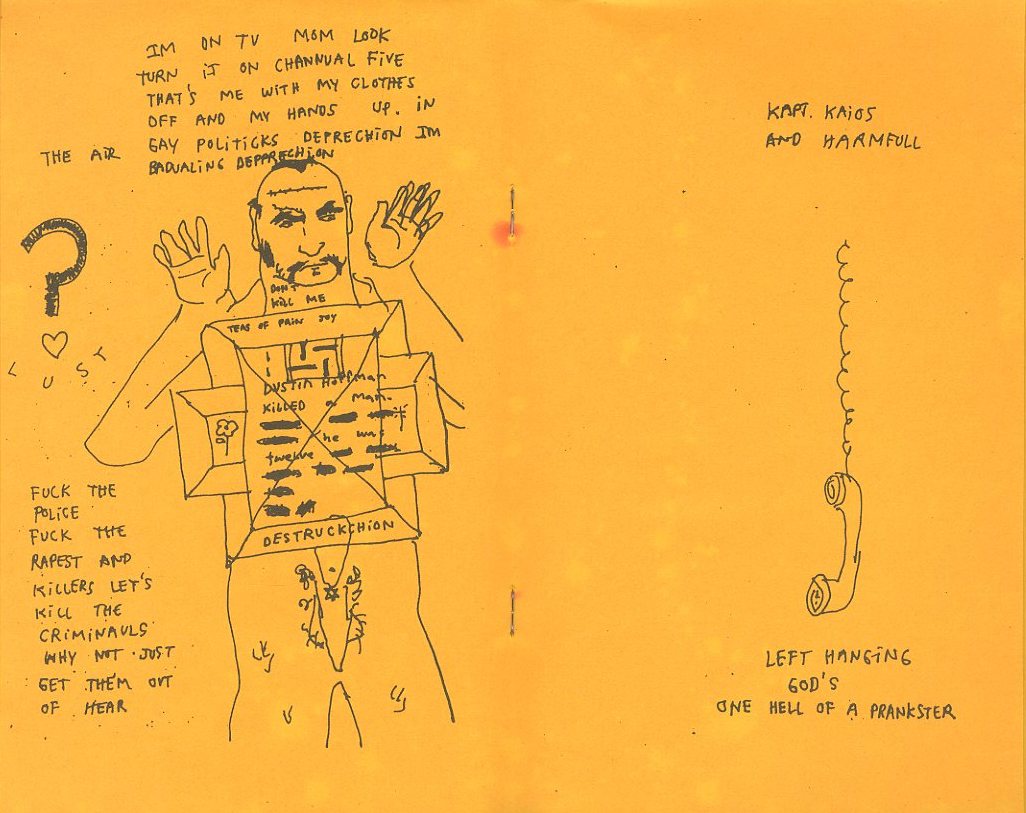 IM ON TV MOM LOOK
TURN iT ON CHANNUAL FIVE
THAT'S ME WITH MY CLOTHES
OFF AND MY HANDS UP. IN
THE AIR GAY POLITICKS DEPRECHION IM
BADUALING DEPPRECHION
?
LUST
DON'T
KILL ME
TEAS OF PAIN JOY
DUSTIN HOFFMAN
KILLED a Man.
he was
twelve
DESTRUCKCHION
FUCK THE
POLICE
FUCK THE
RAPEST AND
KILLERS LET'S
KILL THE
CRIMINAULS
WHY NOT JUST
GET THEM OUT
OF HEAR
KAPT. KAIOS
AND HARMFULL
LEFT HANGING
GOD'S
ONE HELL OF A PRANKSTER